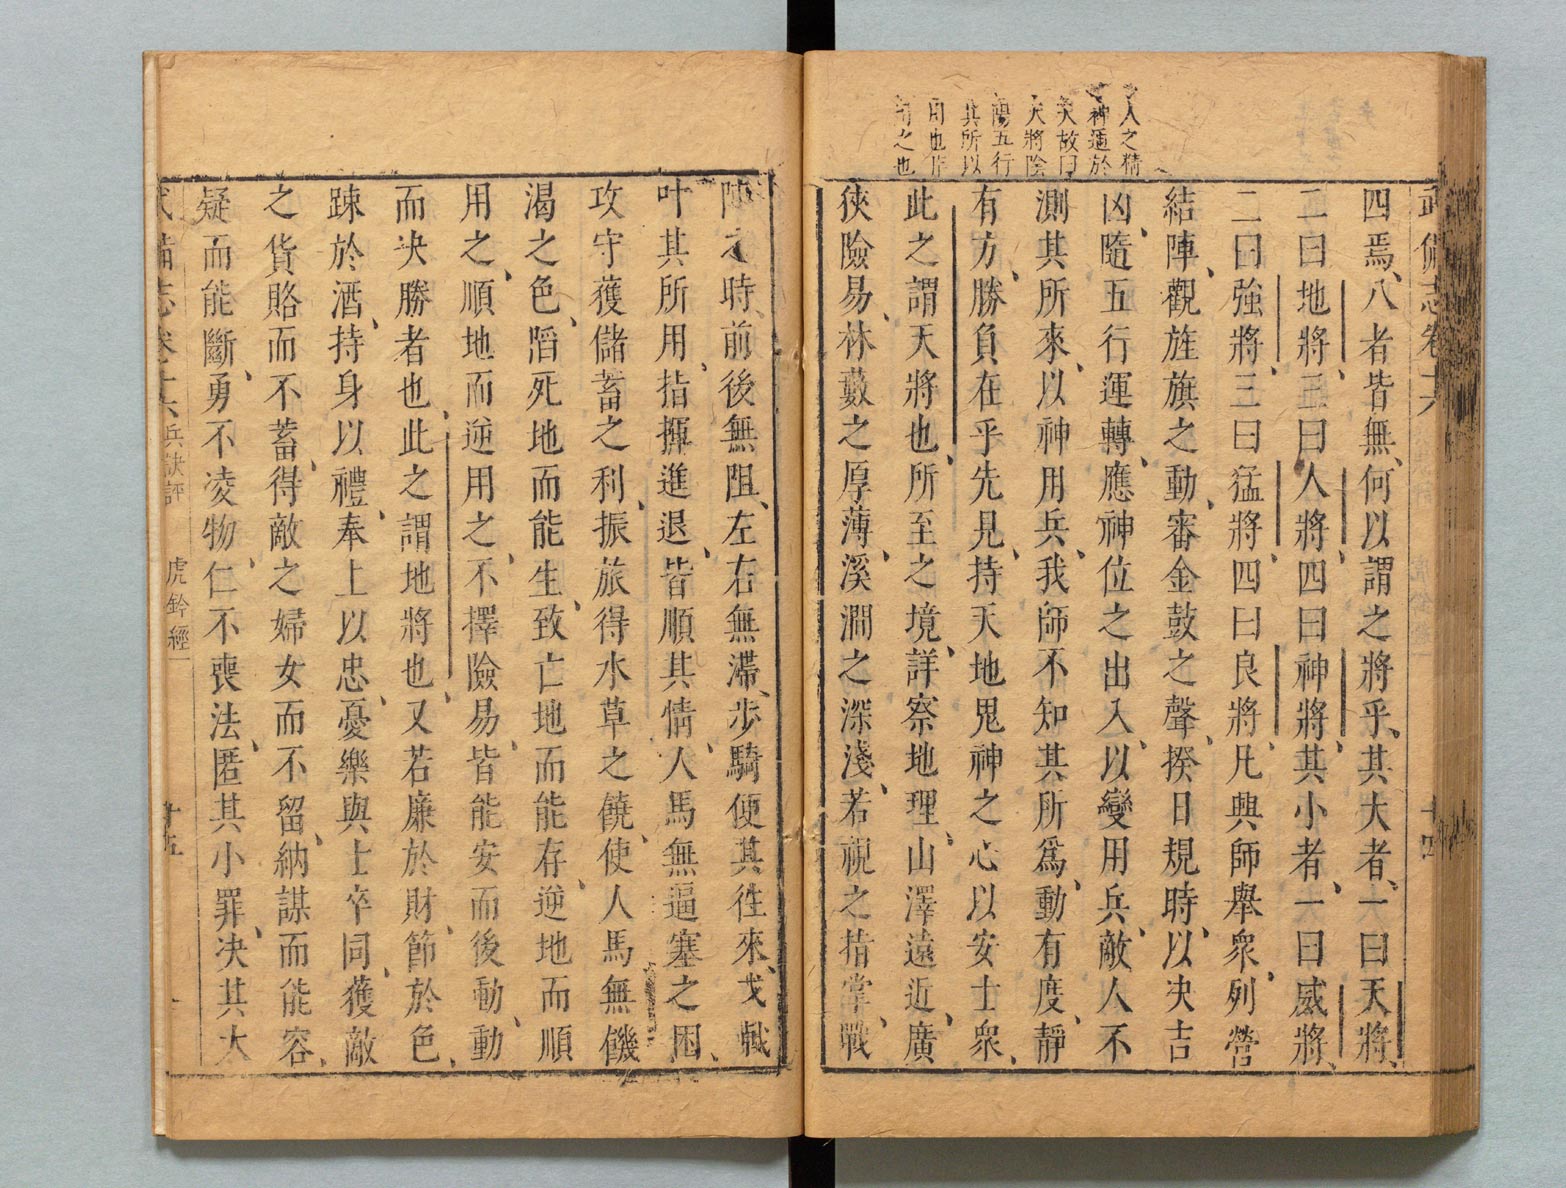 人之精
神通於
天故曰
天將陰
陽五行
其所以
用也作
用之也
四焉八者皆無何以謂之將乎其大者一曰天將
二曰地將三曰人將四曰神將其小者一曰威將
二曰強將三曰猛將四曰良將凡興師舉衆列營
結陣觀旌旗之動審金鼓之聲揆日規時以决吉
凶隨五行運轉應神位之出入以變用兵敵人不
測其所來以神用兵我師不知其所爲動有度靜
有方勝負在乎先見持天地鬼神之心以安士衆
此之謂天將也所至之境詳察地理山澤遠近廣
狹險易林藪之厚薄溪澗之深淺若視之指掌戰
陣之時前後無阻左右無滯步騎便其徃來戈戟
叶其所用指揮進退皆順其情人馬無逼塞之困
攻守獲儲蓄之利振旅得水草之饒使人馬無饑
渴之色䧟死地而能生致亡地而能存逆地而順
用之順地而逆用之不擇險易皆能安而後動動
而决勝者也此之謂地將也又若廉於財節於色
踈於酒持身以禮奉上以忠憂樂與士卒同獲敵
之貨賂而不蓄得敵之婦女而不留納謀而能容
疑而能斷勇不凌物仁不喪法匿其小罪决其大
兵訣評 虎鈐經一 十五